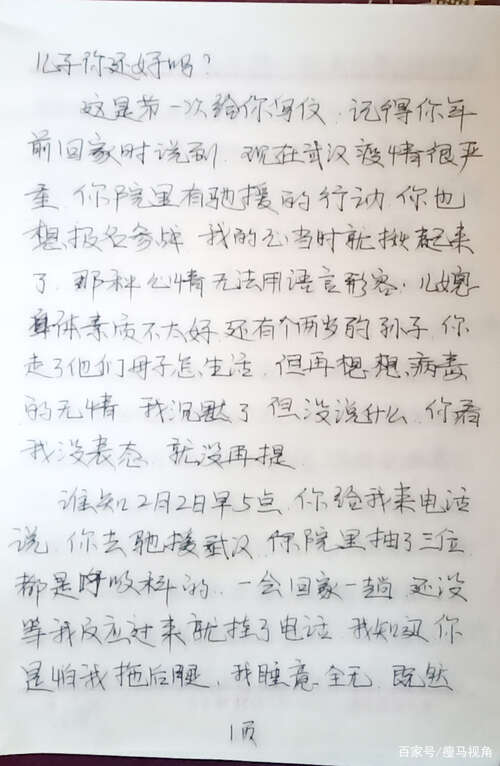 儿子你还好吗？
这是第一次给你写信，记得你年
前回家时说到，现在武汉疫情很严
重，你院里有驰援的行动，你也
想报名参战，我的心当时就揪起来
了，那种心情无法用语言形容。儿媳
身体素质不太好，还有个两岁的孙子，你
走了他们母子怎么生活，但再想想，病毒
的无情，我沉默了，但没说什么，你看
我没表态，就没再提。
谁知2月2日早5点，你给我来电话
说，你去驰援武汉，你院里抽了三位
都是呼吸科的，一会回家一趟，还没
等我反应过来就挂了电话，我知道你
是怕我拖后腿，我睡意全无，既然
1页
百家号/瘦马视角